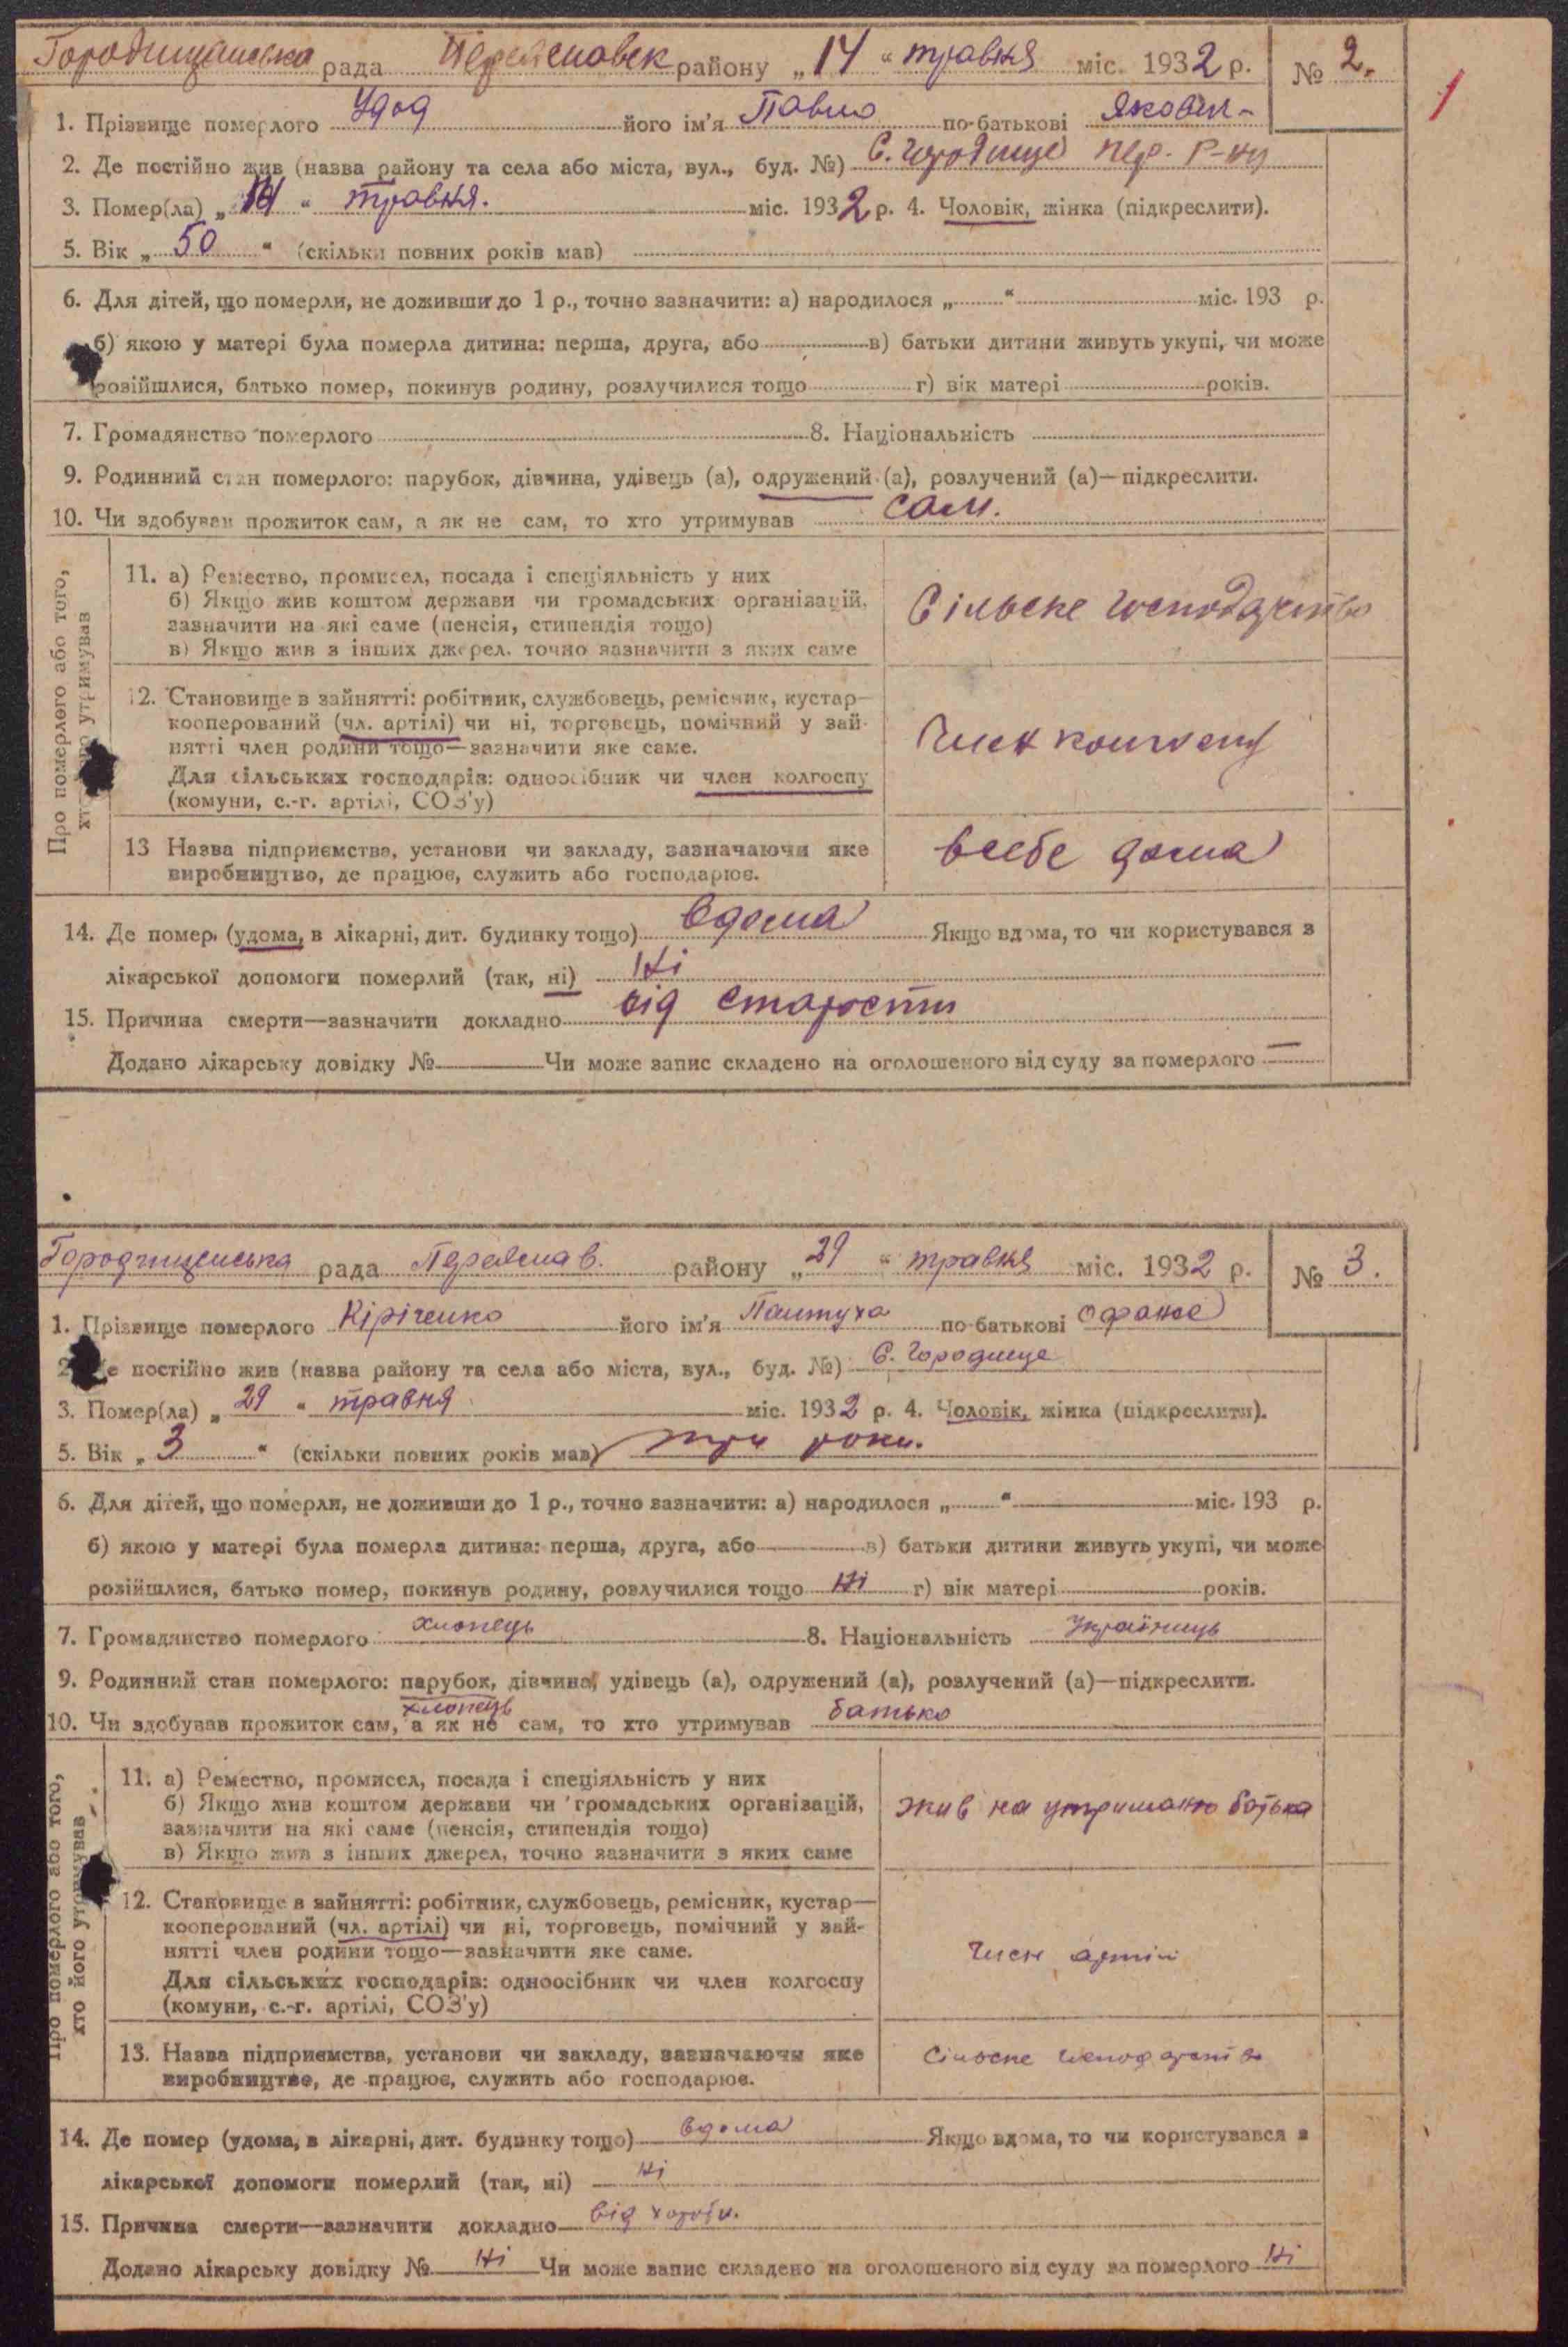 Городищанська рада Переяславск району „14“ травня міс. 1932 р. № 2.
1
1. Прізвище померлого Удод його ім'я Павло по-батькові Яковл-
2. Де постійно жив (назва району та села або міста, вул., буд. №) С. Городище Пер. Р-ну
3. Помер(ла) „14“ травня. міс. 1932 р. 4. Чоловік, жінка (підкреслити).
5. Вік „50“ (скільки повних років мав)
6. Для дітей, що померли, не доживши до 1 р., точно зазначити: а) народилося „ “ міс. 193 р.
б) якою у матері була померла дитина: перша, друга, або в) батьки дитини живуть укупі, чи може
розійшлися, батько помер, покинув родину, розлучилися тощо г) вік матері років.
7. Громадянство померлого 8. Національність
9. Родинний стан померлого: парубок, дівчина, удівець (а), одружений (а), розлучений (а)—підкреслити.
10. Чи здобував прожиток сам, а як не сам, то хто утримував сам.
Про померлого або того,
хто його утримував
11. а) Ремество, промисел, посада і спеціяльність у них
б) Якщо жив коштом держави чи громадських організацій,
зазначити на які саме (пенсія, стипендія тощо)
в) Якщо жив з інших джерел, точно зазначити з яких саме
Сільске господарство
12. Становище в зайнятті: робітник, службовець, ремісник, кустар—
кооперований (чл. артілі) чи ні, торговець, помічний у зай-
нятті член родини тощо—зазначити яке саме.
Для сільських господарів: одноосібник чи член колгоспу
(комуни, с.-г. артілі, СОЗ'у)
Член
13 Назва підприємства, установи чи закладу, зазначаючи яке
виробництво, де працює, служить або господарює.
всебе дома
14. Де помер (удома, в лікарні, дит. будинку тощо) вдома Якщо вдома, то чи користувався з
лікарської допомоги померлий (так, ні) Ні
15. Причина смерти—зазначити докладно від старости
Додано лікарську довідку № Чи може запис складено на оголошеного від суду за померлого —
Городищенська рада Переяслав. району „29“ травня міс. 1932 р. № 3.
1. Прізвище померлого Кіріченко його ім'я по-батькові
2. Де постійно жив (назва району та села або міста, вул., буд. №) С. Городище
3. Помер(ла) „29“ травня міс. 1932 р. 4. Чоловік, жінка (підкреслити).
5. Вік „3“ (скільки повних років мав) три роки.
6. Для дітей, що померли, не доживши до 1 р., точно зазначити: а) народилося „ “ міс. 193 р.
б) якою у матері була померла дитина: перша, друга, або в) батьки дитини живуть укупі, чи може
розійшлися, батько помер, покинув родину, розлучилися тощо Ні г) вік матері років.
7. Громадянство померлого хлопець 8. Національність Українець
9. Родинний стан померлого: парубок, дівчина, удівець (а), одружений (а), розлучений (а)—підкреслити.
хлопець
10. Чи здобував прожиток сам, а як не сам, то хто утримував батько
Про померлого або того,
хто його утримував
11. а) Ремество, промисел, посада і спеціяльність у них
б) Якщо жив коштом держави чи громадських організацій,
зазначити на які саме (пенсія, стипендія тощо)
в) Якщо жив з інших джерел, точно зазначити з яких саме
жив на утриманю батька
12. Становище в зайнятті: робітник, службовець, ремісник, кустар—
кооперований (чл. артілі) чи ні, торговець, помічний у зай-
нятті член родини тощо—зазначити яке саме.
Для сільських господарів: одноосібник чи член колгоспу
(комуни, с.-г. артілі, СОЗ'у)
Член артіл
13. Назва підприємства, установи чи закладу, зазначаючи яке
виробництво, де працює, служить або господарює.
Сільске господарство
14. Де помер (удома, в лікарні, дит. будинку тощо) вдома Якщо вдома, то чи користувався з
лікарської допомоги померлий (так, ні) Ні
15. Причина смерти—зазначити докладно від хороби.
Додано лікарську довідку № Ні Чи може запис складено на оголошеного від суду за померлого Ні